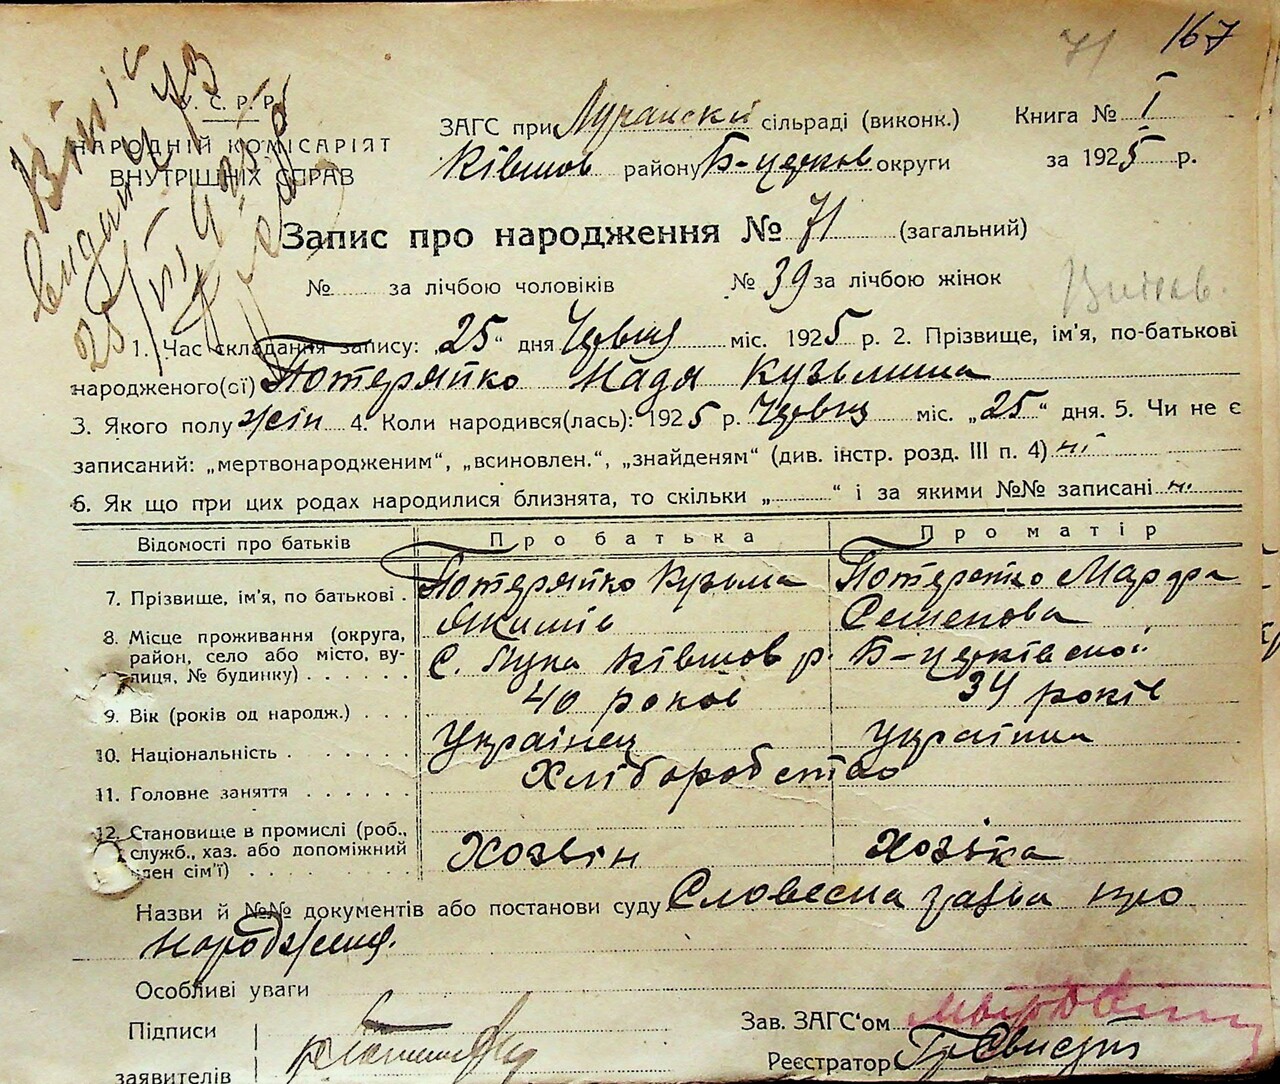 71 167
У. С. Р. Р.
НАРОДНІЙ КОМІСАРІЯТ
ВНУТРІШНІХ СПРАВ
ЗАГС при Лучанскй сільраді (виконк.)
Книга № I
Ківшов району Б-церков округи
за 1925 р.
Запис про народження № 71 (загальний)
№ за лічбою чоловіків № 39 за лічбою жінок
1. Час складання запису: „25“ дня Червця міс. 1925 р. 2. Прізвище, ім'я, по-батькові
народженого(ої) Потеряйко Надя Кузьмина
3. Якого полу жін 4. Коли народився(лась): 1925 р. Червця міс. „25“ дня. 5. Чи не є
записаний: „мертвонародженим“, „всиновлен.“, „знайденям“ (див. інстр. розд. III п. 4) ні
6. Як що при цих родах народилися близнята, то скільки „ “ і за якими №№ записані ні
Відомості про батьків Про батька Про матір
7. Прізвище, ім'я, по батькові . Потеряйко Кузьма Якимів Потеряйко Марфа Семенова
8. Місце проживання (округа, район, село або місто, вулиця, № будинку) . . . . . . С. Лука Ківшов р. Б-церківської
9. Вік (років од народж.) . . . 40 років 34 років
10. Національність . . . . . . Українец Українка
11. Головне заняття . . . . . Хліборобство
12. Становище в промислі (роб.,
служб., хаз. або допоміжний
член сім'ї) . . . . . . . . Хозяін Хозяйка
Назви й №№ документів або постанови суду Словесна заява про
народження.
Особливі уваги
Підписи
заявителів
Зав. ЗАГС'ом
Реєстратор